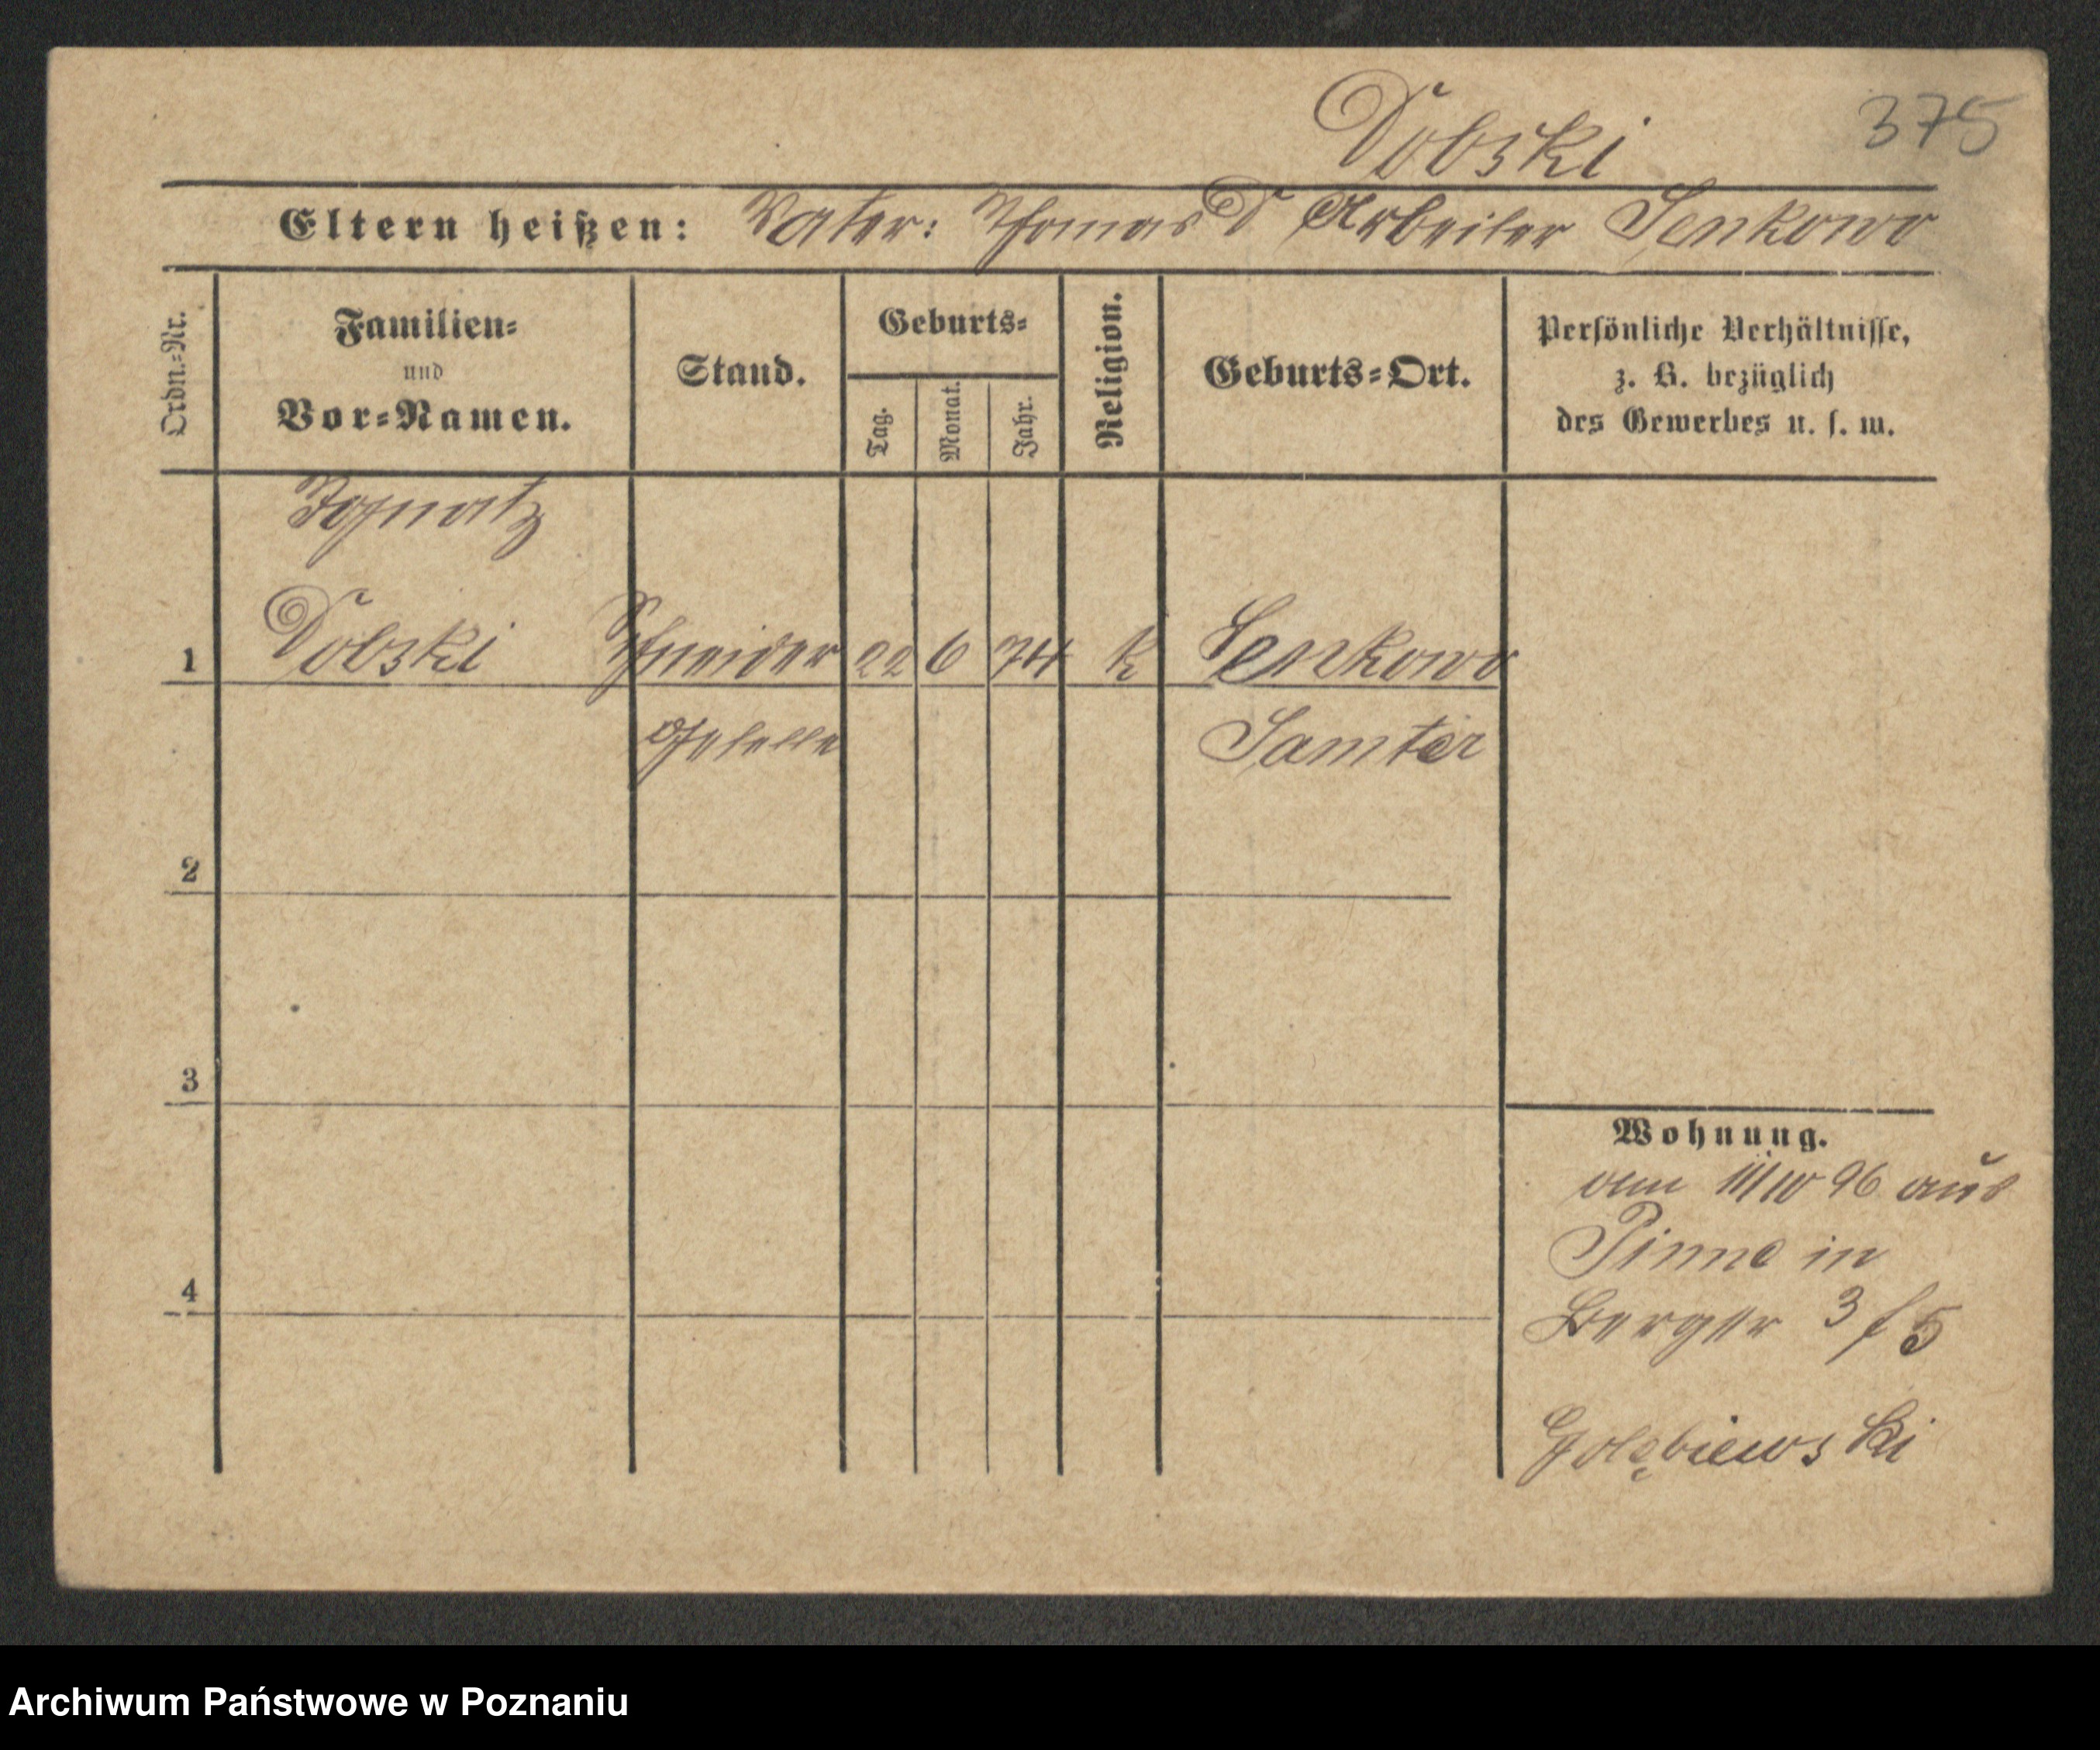 Dobski
375
Eltern heißen: Vater: Thomas D Arbeiter Senkowo
Ordn.-Nr.
Familien-
und
Vor-Namen.
Stand.
Geburts-
Tag.
Monat.
Jahr.
Religion.
Geburts-Ort.
Persönliche Verhältnisse,
z. B. bezüglich
des Gewerbes u. s. w.
Ignatz
1 Dobski Schneider 22 6 74 k Senkowo
Geselle Samter
2
3
4
Wohnung.
96 aus
Pinne in
Berger 3 / 5
Golębiewski
Archiwum Państwowe w Poznaniu